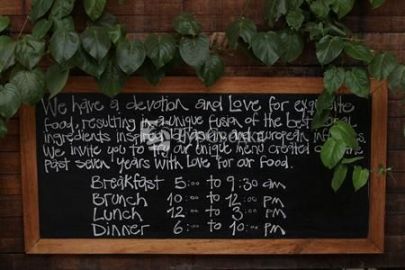 We have a devotion and Love for exquisite
Food, resulting in a unique fusion of the best local
ingredients inspired by Asian and European
We invite you to try our unique menu created
Past seven years with Love for our food.
Breakfast 5:00 to 9:30 am
Brunch 10:00 to 12:00 pm
Lunch 12:00 to 3:00 pm
Dinner 6:00 to 10:00 pm